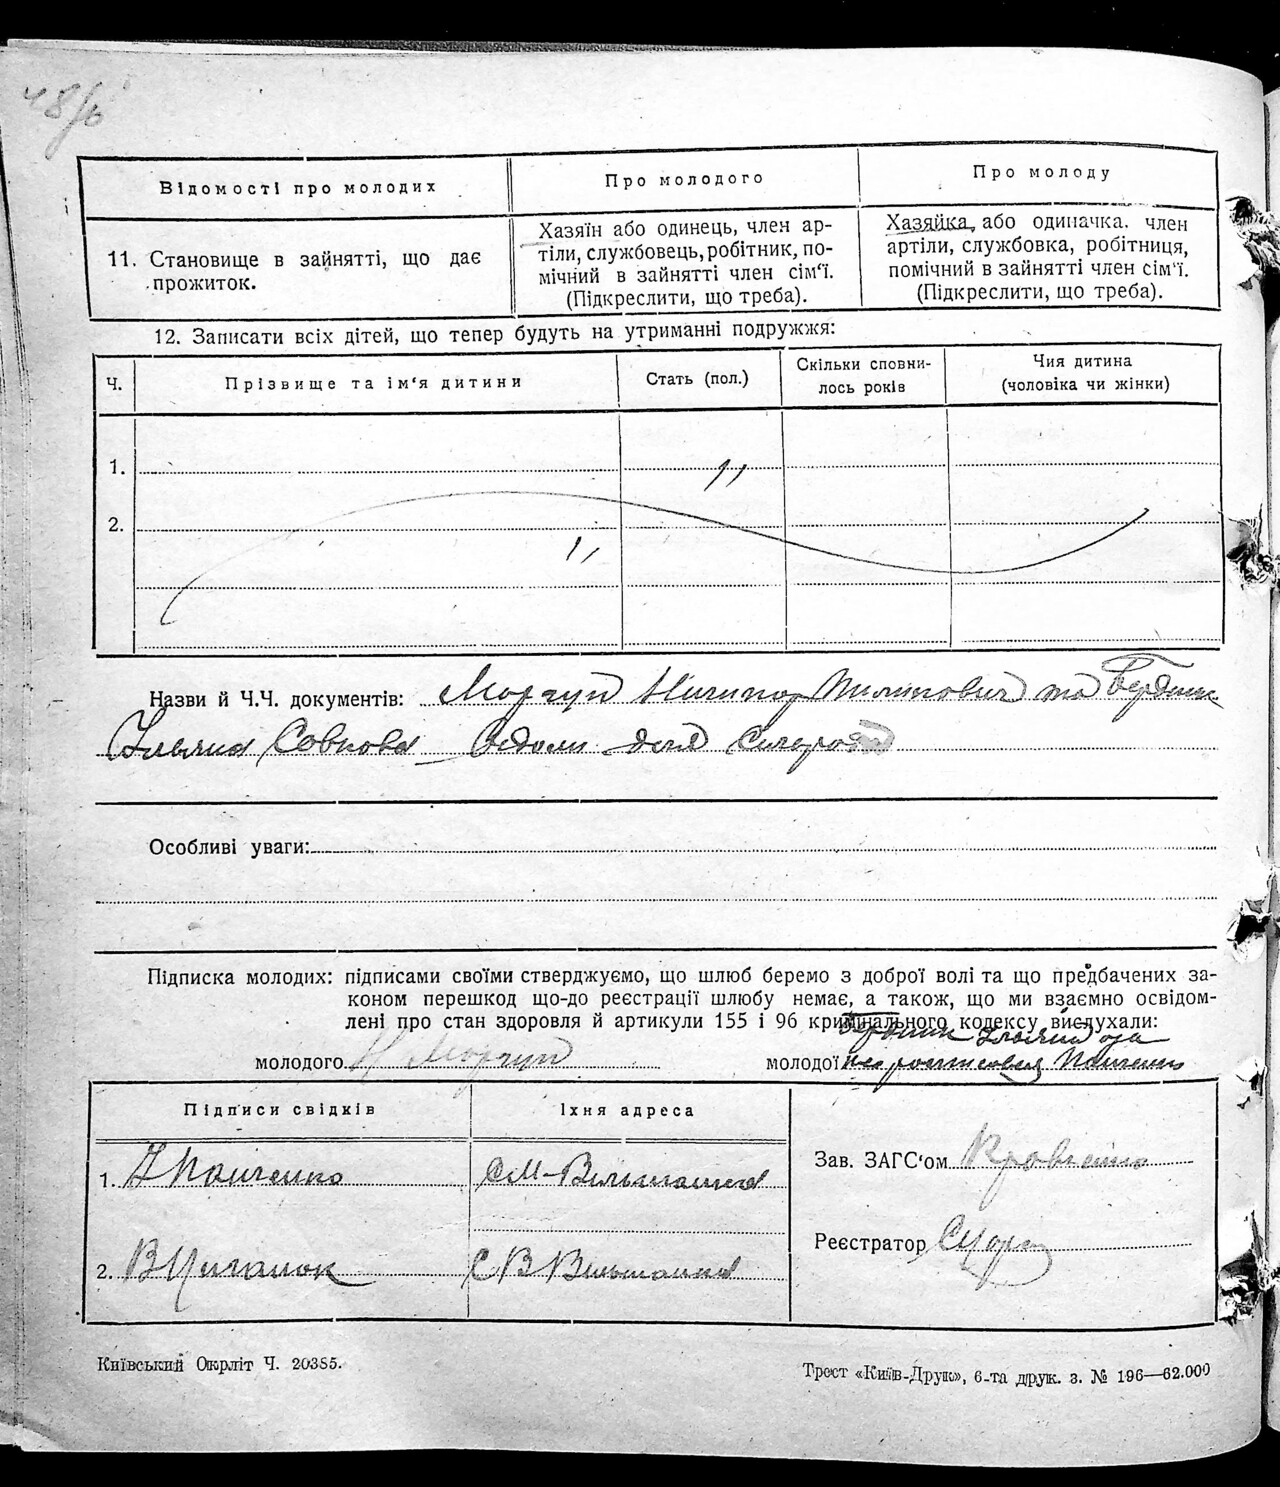 Відомості про молодих
Про молодого
Про молоду
11. Становище в зайнятті, що дає
прожиток.
Хазяїн або одинець, член ар-
тіли, службовець, робітник, по-
мічний в зайнятті член сім'ї.
(Підкреслити, що треба).
Хазяйка, або одиначка. член
артіли, службовка, робітниця,
помічний в зайнятті член сім'ї.
(Підкреслити, що треба).
12. Записати всіх дітей, що тепер будуть на утриманні подружжя:
Ч.
Прізвище та ім'я дитини
Стать (пол.)
Скільки сповни-
лось років
Чия дитина
(чоловіка чи жінки)
1.
2.
Назви й Ч.Ч. документів: Моргун Ничипор та
Особливі уваги:
Підписка молодих: підписами своїми стверджуємо, що шлюб беремо з доброї волі та що предбачених за-
коном перешкод що-до реєстрації шлюбу немає, а також, що ми взаємно освідом-
лені про стан здоровля й артикули 155 і 96 кримінального кодексу вислухали:
молодого Н Моргун
молодої
Підписи свідків
Їхня адреса
1. Панченко
С М-Вільшанка
2. В Циганок
С В Вільшанка
Зав. ЗАГС'ом
Реєстратор
Київський Окрліт Ч. 20385.
Трест «Київ-Друк», 6-та друк. з. № 196—62.000